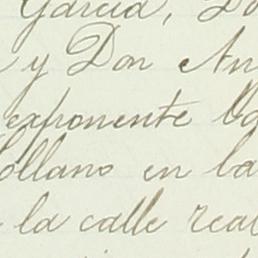 García, Do
y Don An
exponente Va
ollano en la
la calle real